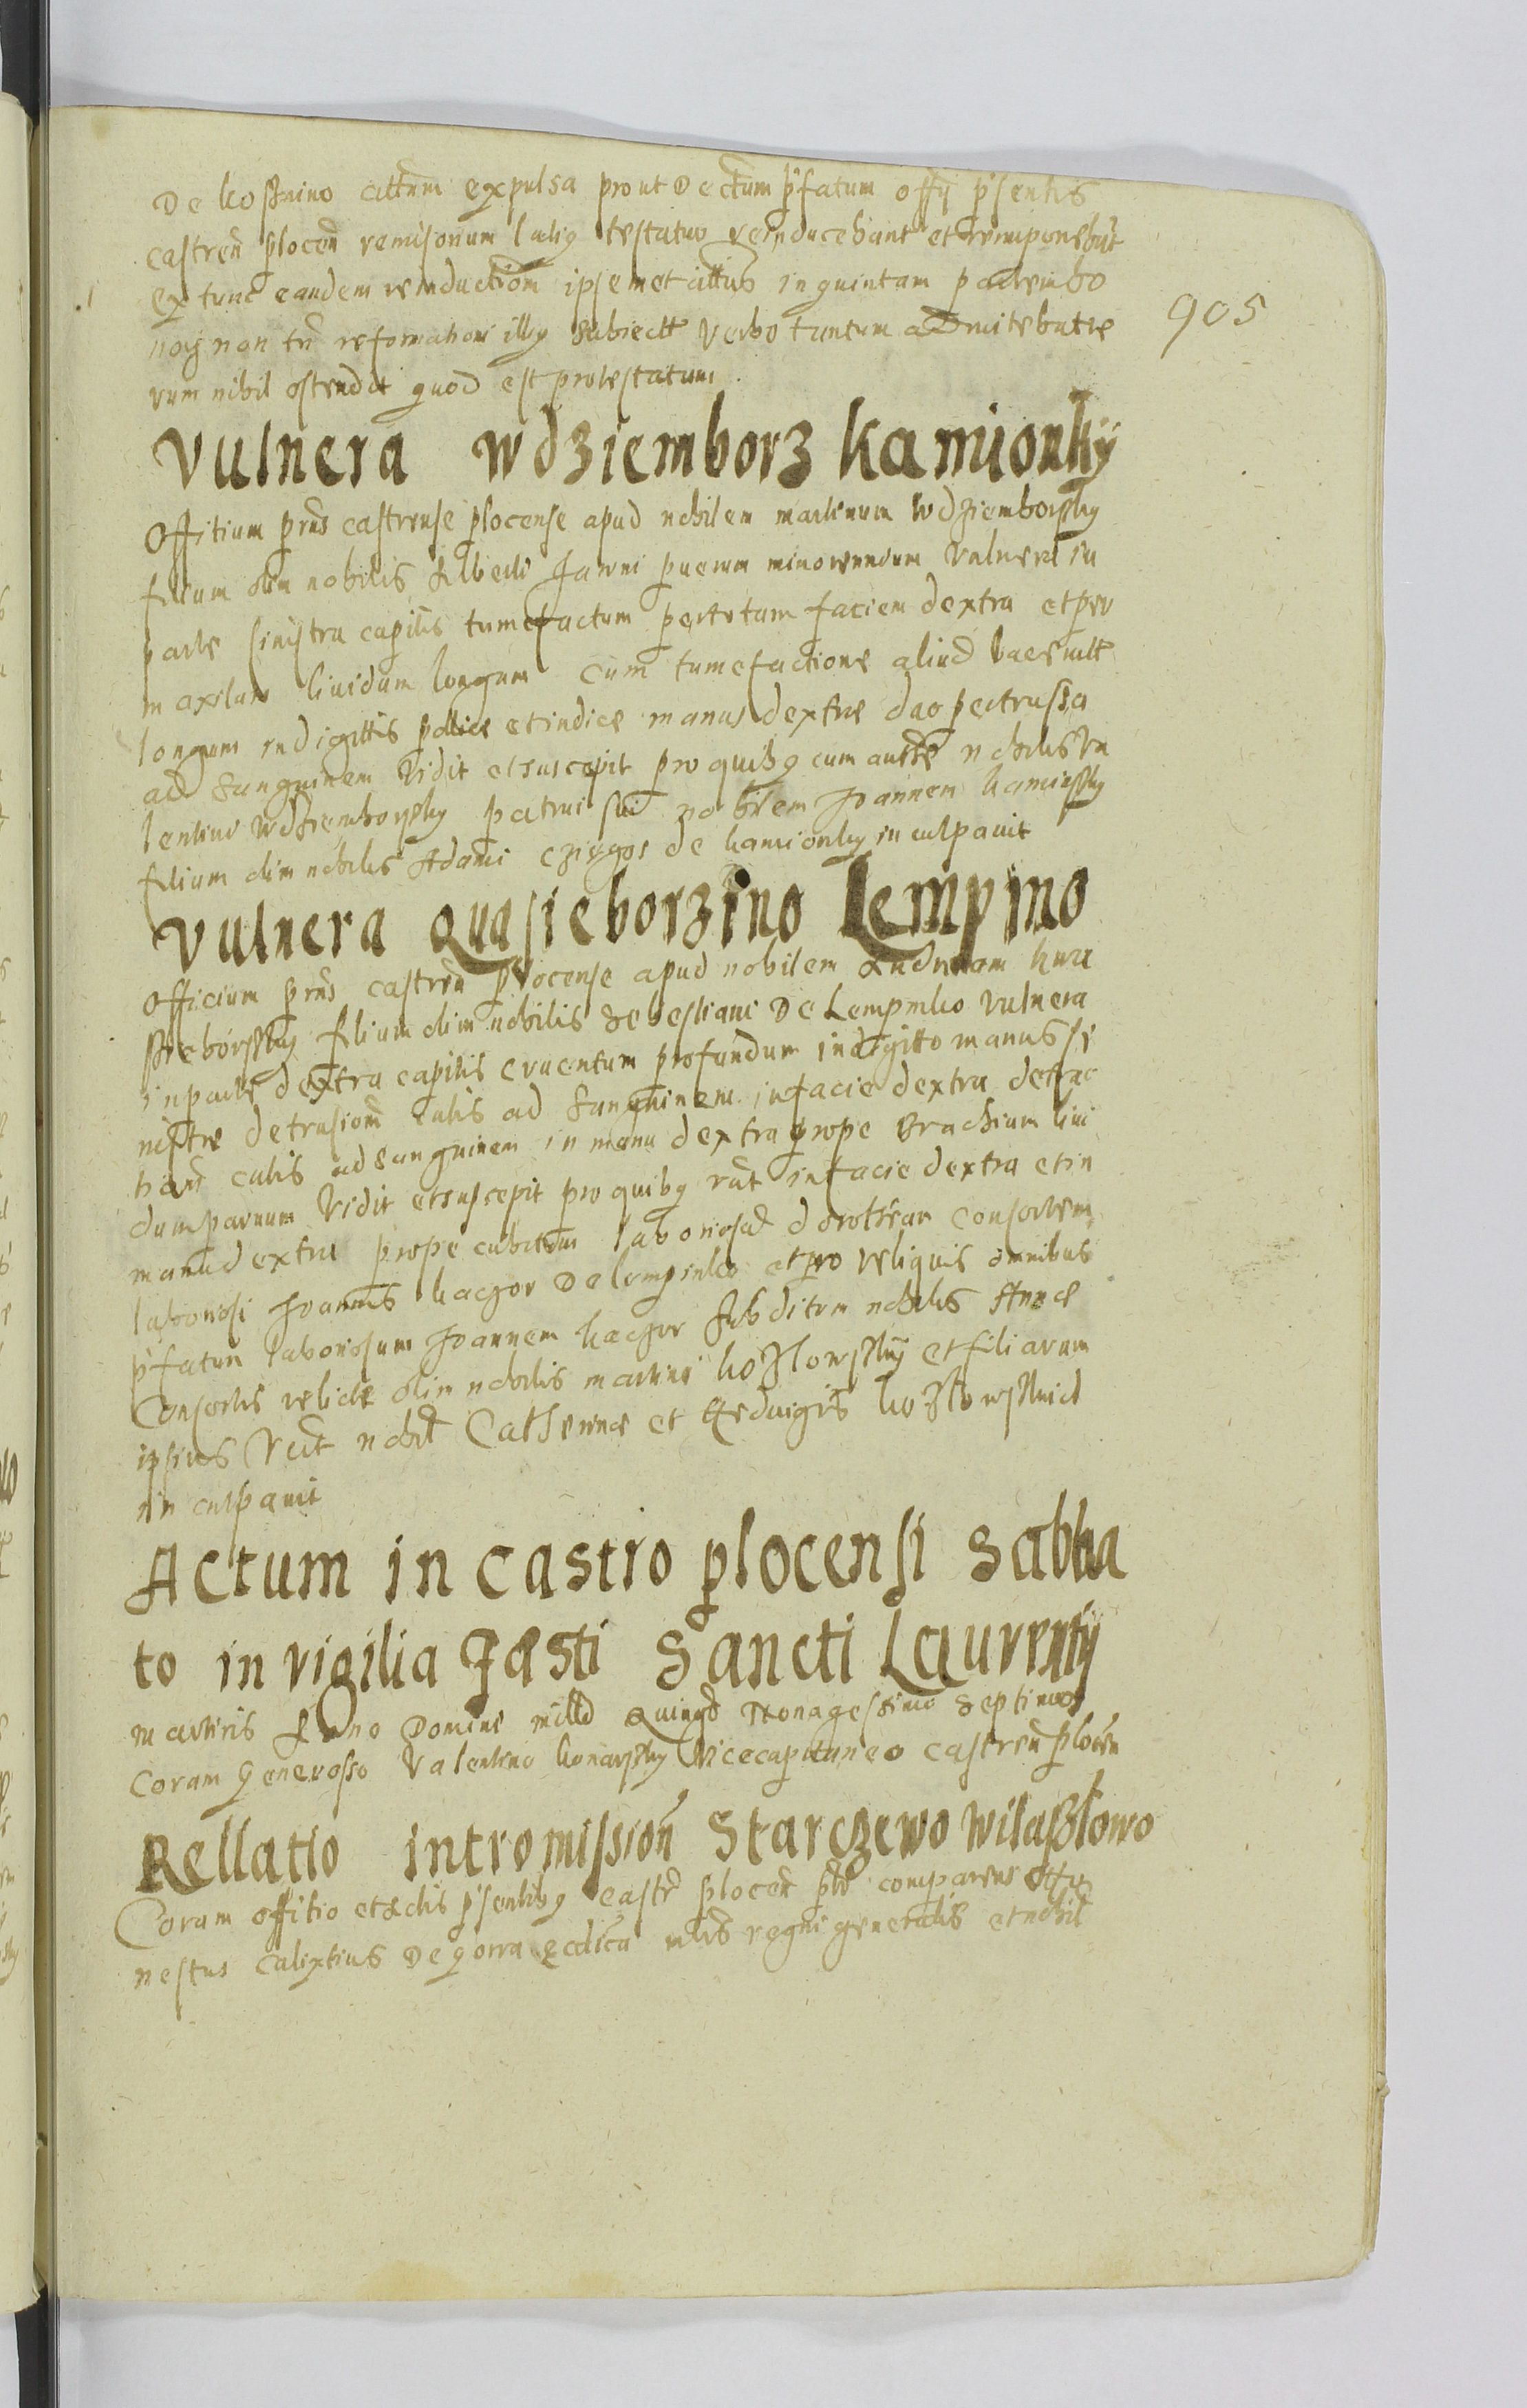 De kossnino attum expulsa prout Dectum p'fatum offy p'sentis
castren plocen remisorium latiq testatur reinducebant et reimponebat
ex tunc eandem reinductiom ipsemet attus in quintam partem bo
noq non tn reformationi illq subiectt verbo tantum admitebat re
rum nihil ostendit quod est protestatum.
905
Vulnera Wdziemborz kamionky
Offitium prns castrense plocense apud nobilem martinum Wdziemborsky
filium olim nobilis Alberti Jawni puerum minorennem Vulnera in
parte sinistra capitis tumefactum per totam faciem dextra et per
maxilam liuidum longum cum tumefactione aliud
longum in digittis pollice et indice manus dextre duo pertrussa
ad sanguinem Vidit et suscepit pro quibq cum nobilis Va
lentini Wdziemborsky patrui sui nobilem Joannem kamiesky
filium olim nobilis Adami de kamionky inculpauit
Vulnera Quasieborzino Lempino
Officium prns castren plocense apud nobilem Andream kwa
sieborsky filium olim nobilis Sebestiani De Lempinko Vulnera
in parte dextra capitis cruentum profundum in digitto manus si
nistre detrusiom cutis ad sanguinem in facie dextra detrac
tiom cutis ad sanguinem in manu dextra prope Brachium liui
dum paruum Vidit et suscepit pro quibq in facie dextra et in
manu dextra prope cubitum laboriosa dorothean consortem
laboriosi Joannis kaczor De lempinko et pro reliquis omnibus
p'fatum laboriosum Joannem kaczor subditum nobilis Anne
Consortis relicte olim nobilis martini kozlowsky et filiarum
ipsius nobil Catherine et Heduigis kozlowsknich
inculpauit
Actum in castro plocensi Sabba
to in vigilia Festi Sancti Laurenty
martiris Anno Domini milld Quingd Nonagessimo septimo
Coram generosso Valentino konarsky Vicecapitaneo castren plocen
Rellatio intromission Starczewo Wilaszlowo
Coram offitio et actis p'sentibq castr plocen comparens
nestus calixtius De gorra mlis regni generalis et nobil